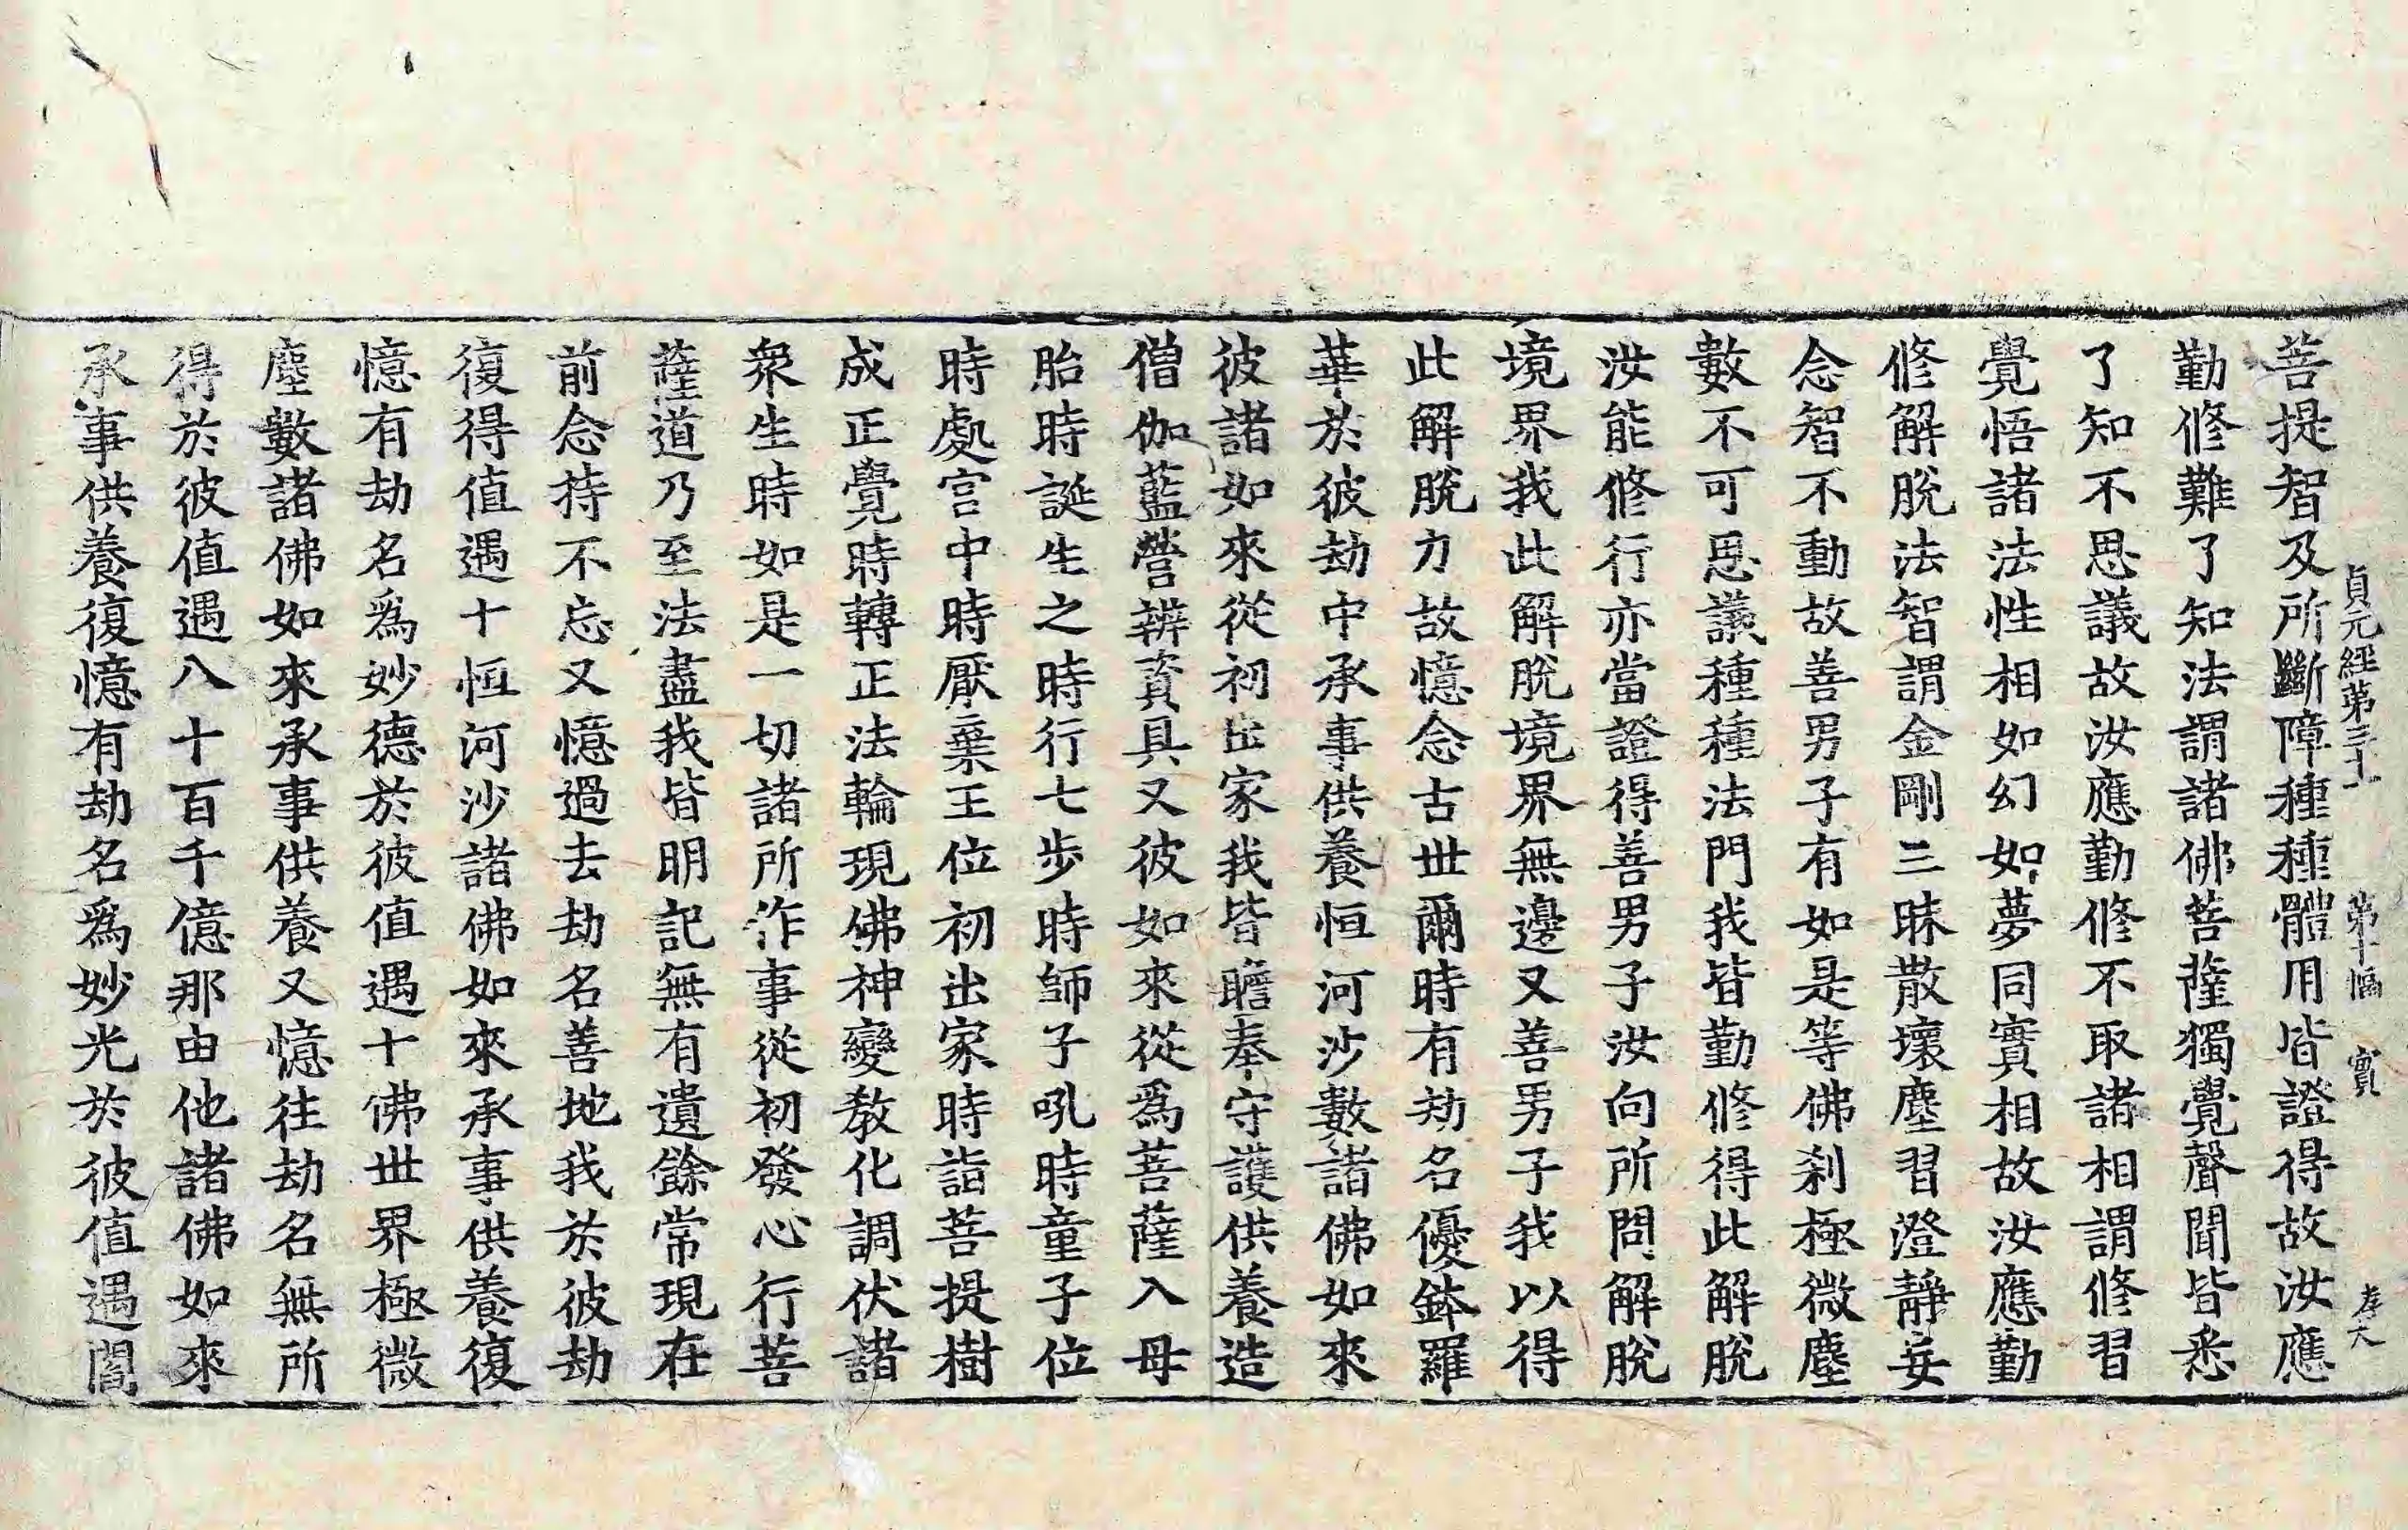 貞元經第三十一 第十幅 實 存大
菩提智及所斷障種種體用皆證得故汝應
勤修難了知法謂諸佛菩薩獨覺聲聞皆悉
了知不思議故汝應勤修不取諸相謂修習
覺悟諸法性相如幻如夢同實相故汝應勤
修解脫法智謂金剛三昧散壞塵習澄靜妄
念智不動故善男子有如是等佛剎極微塵
數不可思議種種法門我皆勤修得此解脫
汝能修行亦當證得善男子汝向所問解脫
境界我此解脫境界無邊又善男子我以得
此解脫力故憶念古世爾時有劫名優鉢羅
華於彼劫中承事供養恒河沙數諸佛如來
彼諸如來從初出家我皆瞻奉守護供養造
僧伽藍營辨資具又彼如來從爲菩薩入母
胎時誕生之時行七步時師子吼時童子位
時處宮中時厭棄王位初出家時詣菩提樹
成正覺時轉正法輪現佛神變教化調伏諸
衆生時如是一切諸所作事從初發心行菩
薩道乃至法盡我皆明記無有遺餘常現在
前念持不忘又憶過去劫名善地我於彼劫
復得值遇十恒河沙諸佛如來承事供養復
憶有劫名爲妙德於彼值遇十佛世界極微
塵數諸佛如來承事供養又憶往劫名無所
得於彼值遇八十百千億那由他諸佛如來
承事供養復憶有劫名爲妙光於彼值遇閻